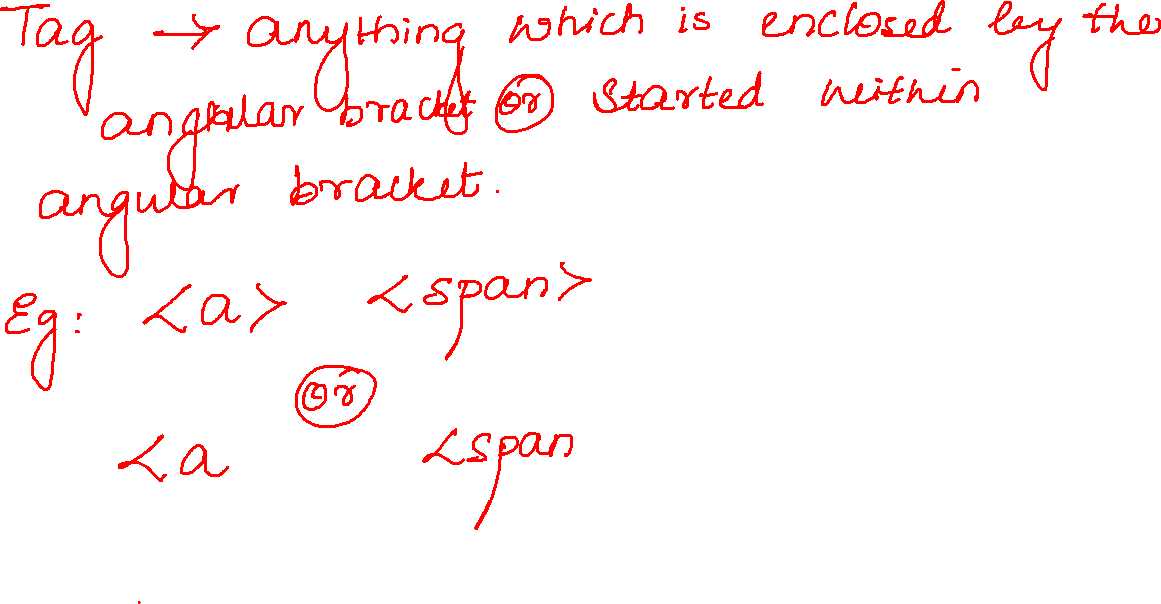 Tag → anything which is enclosed by the
angular bracket or started within
angular bracket.
Eg: <a> <span>
or
<a <span